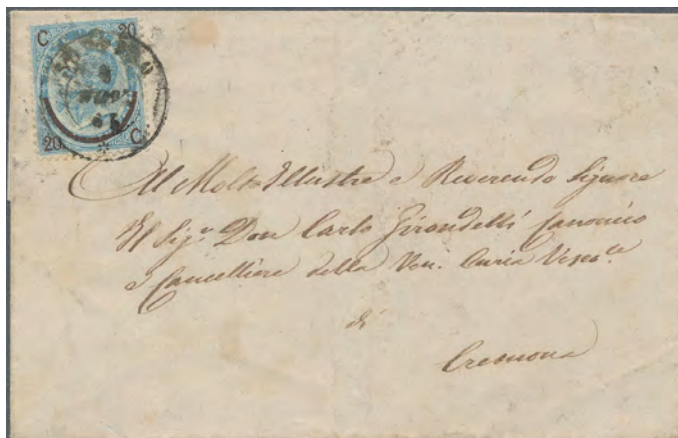 C 20
20 C
Al Molto Illustre e Reverendo Signore
Il Sigr. Don Carlo Girondelli Canonico
e Cancelliere della Ven. Curia Vescole.
di
Cremona